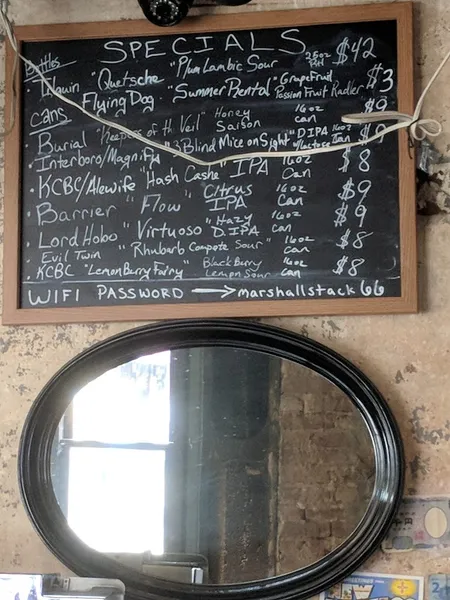 SPECIALS
Bottles
• Tilquin "Quetsche" Plum Lambic Sour 25oz $42
• Flying Dog "Summer Rental" Grapefruit Passion Fruit Radler $3
cans
• Burial "Keepers of the Veil" Honey Saison 16oz can $9
• Interboro/Magnify "3 Blind Mice on Sight" DIPA w/lactose 16oz can $9
• KCBC/Alewife "Hash Cashe" IPA 16oz can $8
• Barrier "Flow" Citrus IPA 16oz can $9
• Lord Hobo "Virtuoso" Hazy D.IPA 16oz can $9
• Evil Twin "Rhubarb Compote Sour" 16oz can $8
• KCBC "LemonBerry Fairy" BlackBerry Lemon Sour can $8
WIFI PASSWORD → marshallstack66